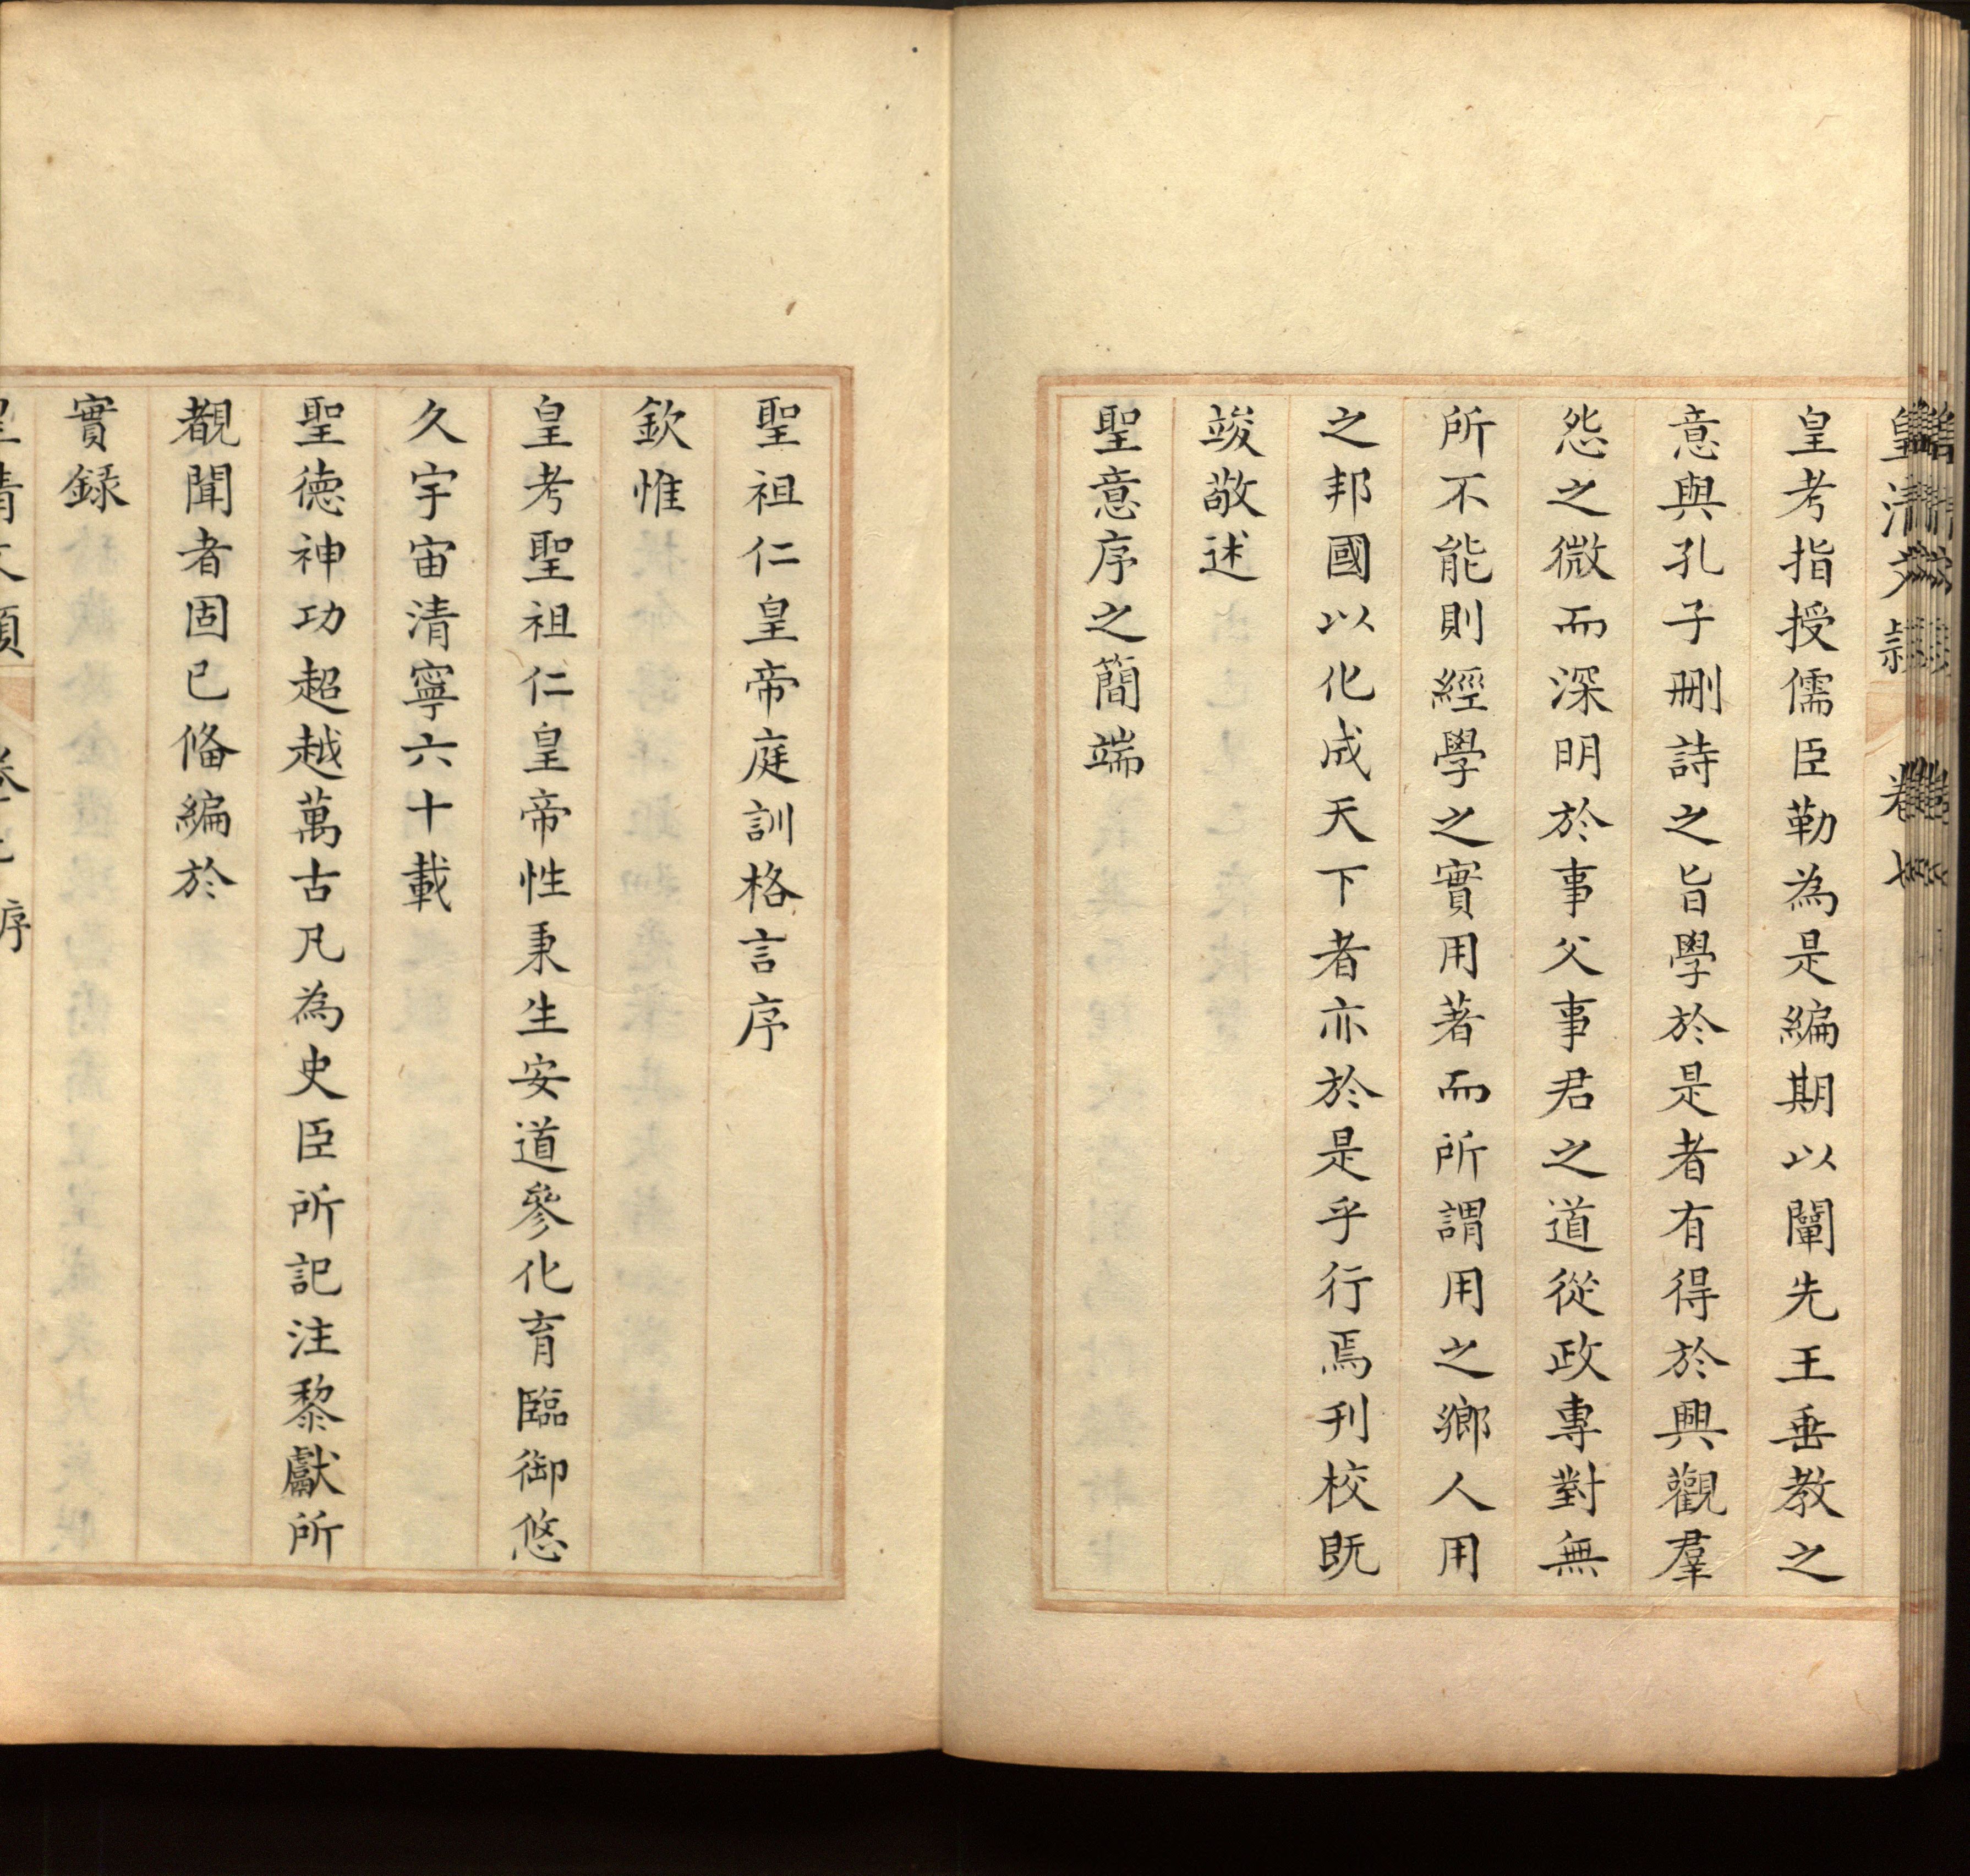 皇清文穎 卷七
皇考指授儒臣勒為是編期以闡先王垂教之
意與孔子刪詩之旨學於是者有得於興觀羣
怨之微而深明於事父事君之道從政專對無
所不能則經學之實用著而所謂用之鄉人用
之邦國以化成天下者亦於是乎行焉刊校既
竣敬述
聖意序之簡端
聖祖仁皇帝庭訓格言序
欽惟
皇考聖祖仁皇帝性秉生安道參化育臨御悠
久宇宙清寧六十載
聖德神功超越萬古凡為史臣所記注黎獻所
覩聞者固已備編於
實録
皇清文穎 卷七 序